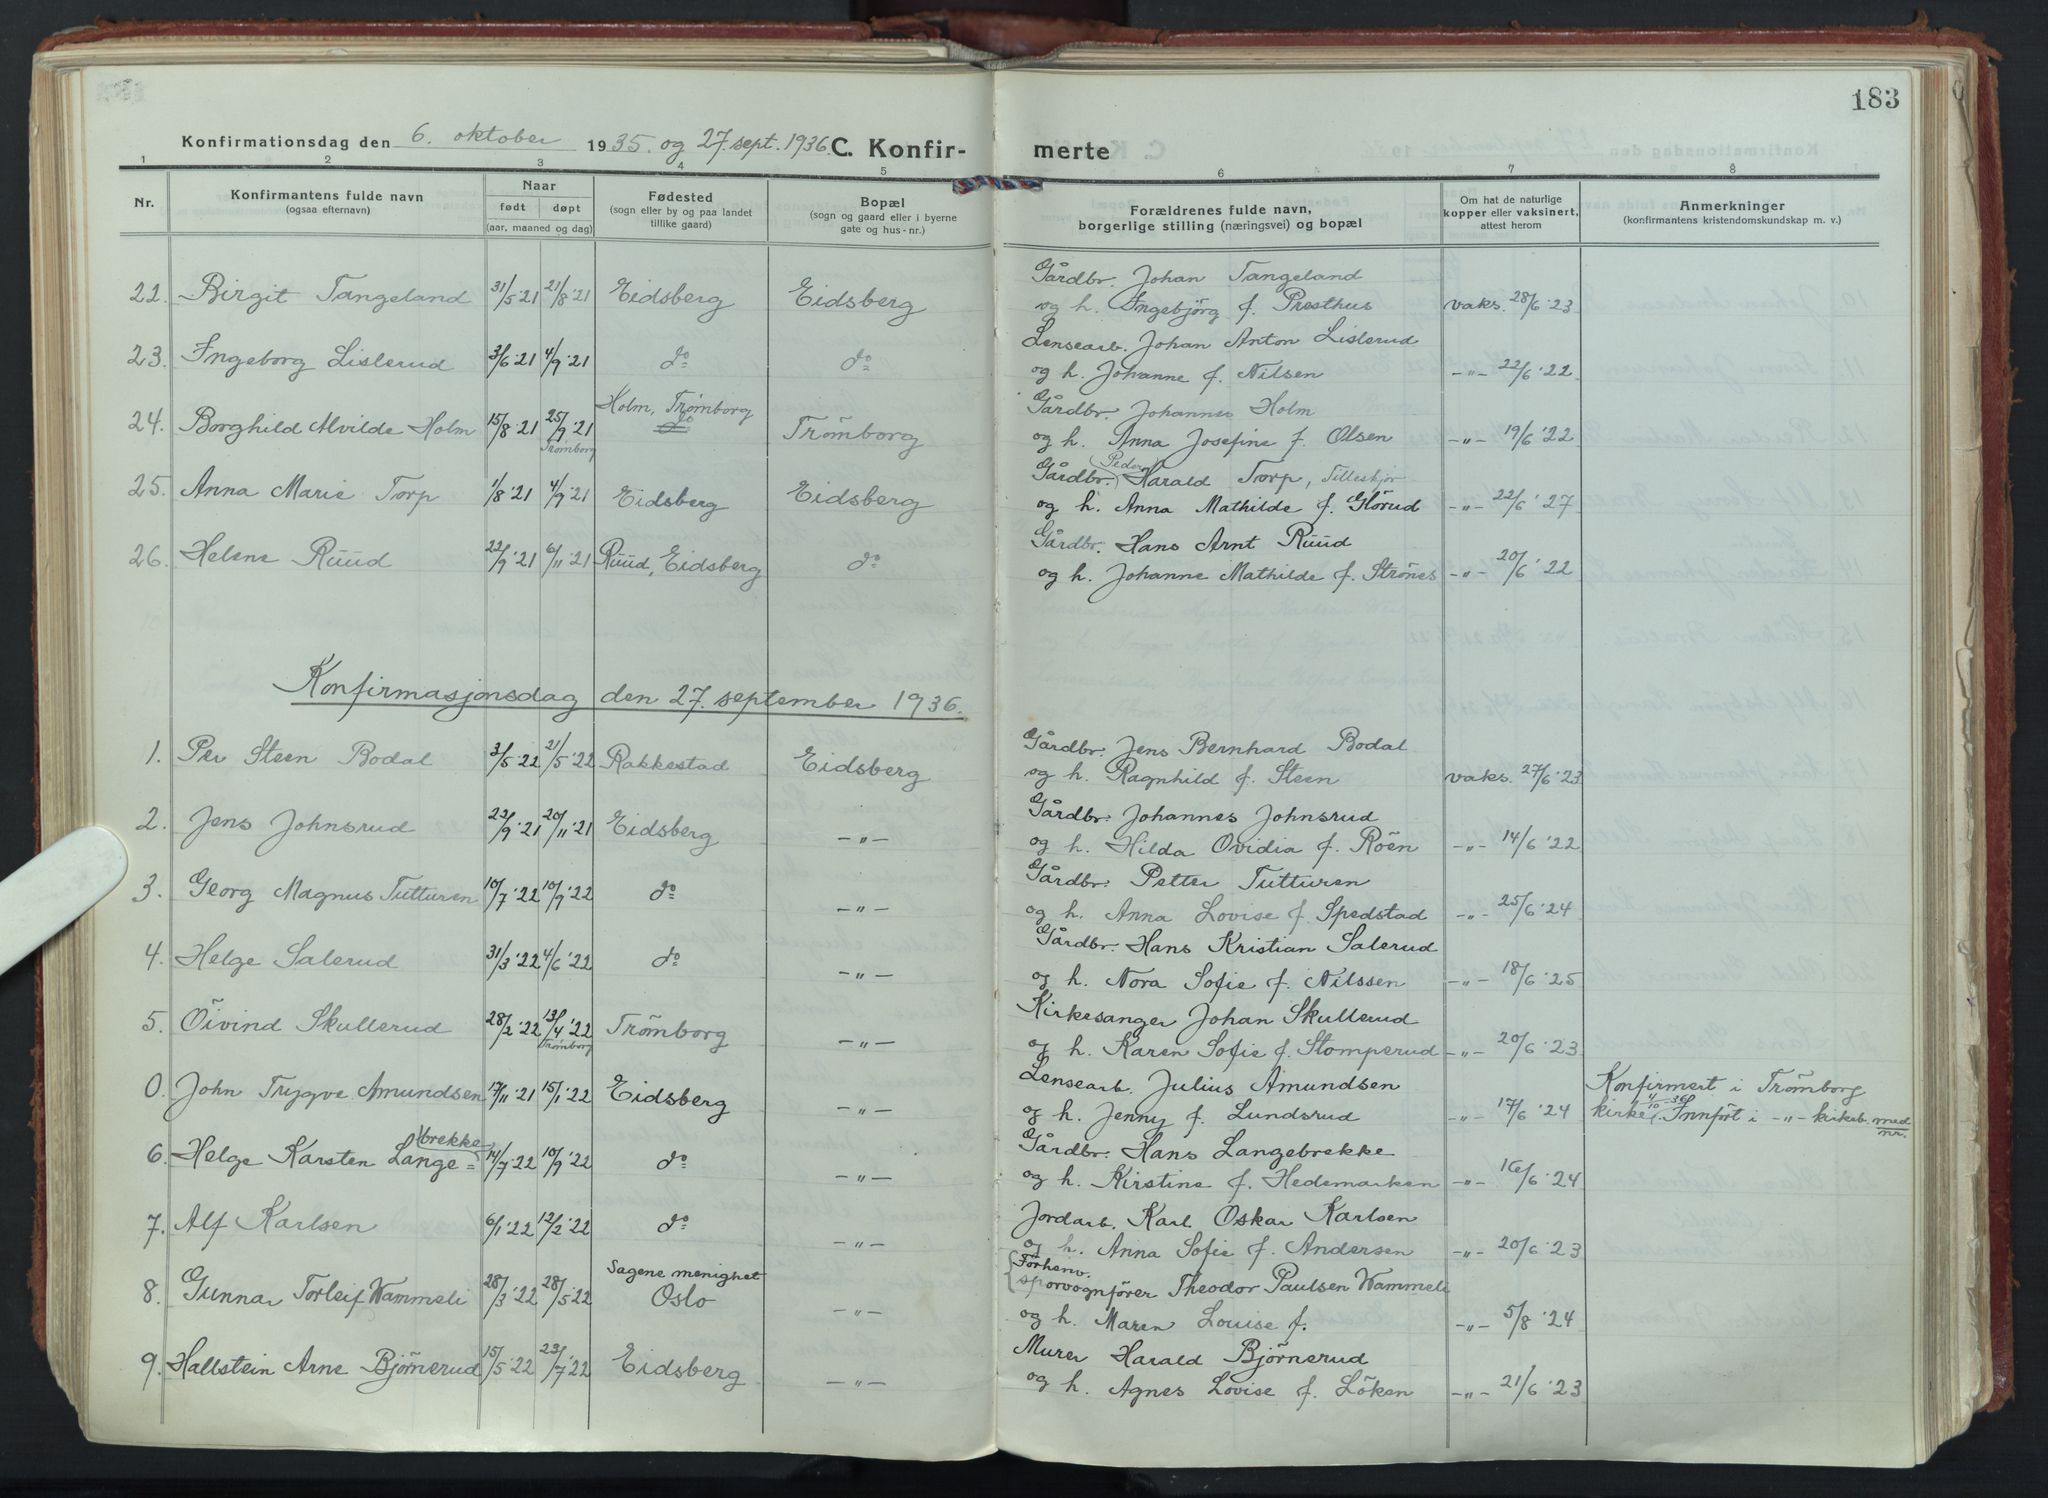 183
Konfirmationsdag den 6. oktober 1935. og 27. sept. 1936 C. Konfir- merte
1 2 3 4 5 6 7 8
Nr.
Konfirmantens fulde navn
(ogsaa efternavn)
Naar
født døpt
(aar, maaned og dag)
Fødested
(sogn eller by og paa landet
tillike gaard)
Bopæl
(sogn og gaard eller i byerne
gate og hus-nr.)
Forældrenes fulde navn,
borgerlige stilling (næringsvei) og bopæl
Om hat de naturlige
kopper eller vaksinert,
attest herom
Anmerkninger
(konfirmantens kristendomskundskap m. v.)
Gårdbr. Johan Tangeland
22. Birgit Tangeland 31/5 '21 21/8 '21 Eidsberg Eidsberg og h. Ingebjörg f. Presthus vaks. 28/6 '23
Lensearb. Johan Anton Lislerud
23. Ingeborg Lislerud 3/6 '21 4/9 '21 do do og h. Johanne f. Nilsen -"- 22/6 '22
Holm, Trømborg Gårdbr. Johannes Holm
24. Borghild Alvilde Holm 15/8 '21 25/9 '21 Trømborg do Trömborg og h. Anna Josefine f. Olsen -"- 19/6 '22
Gårdbr. (Peder) Harald Torp, Tilleskjør
25. Anna Marie Torp 1/8 '21 4/9 '21 Eidsberg Eidsberg og h. Anna Mathilde f. Glörud -"- 22/6 '27
Gårdbr. Hans Arnt Ruud
26. Helene Ruud 22/9 '21 6/11 '21 Ruud, Eidsberg do og h. Johanne Mathilde f. Strönes -"- 20/6 '22
Konfirmasjonsdag den 27. september 1936.
Gårdbr. Jens Bernhard Bodal
1. Per Steen Bodal 3/5 '22 21/5 '22 Rakkestad Eidsberg og h. Ragnhild f. Steen vaks. 27/6 '23
Gårdbr. Johannes Johnsrud
2. Jens Johnsrud 22/9 '21 20/11 '21 Eidsberg -"- og h. Hilda Ovidia f. Röen -"- 14/6 '22
Gårdbr. Petter Tutturen
3. Georg Magnus Tutturen 10/7 '22 10/9 '22 do -"- og h. Anna Lovise f. Spedstad -"- 25/6 '24
Gårdbr. Hans Kristian Salerud
4. Helge Salerud 31/3 '22 4/6 '22 do -"- og h. Nora Sofie f. Nilssen -"- 18/6 '25
Kirkesanger Johan Skullerud
5. Öivind Skullerud 28/2 '22 13/4 '22 Trømborg Trömborg -"- og h. Karen Sofie f. Stomperud -"- 20/6 '23
Lensearb. Julius Amundsen Konfirmert i Trömborg
0. John Trygve Amundsen 17/11 '21 15/1 '22 Eidsberg -"- og h. Jenny f. Lundsrud -"- 17/6 '24 kirke 4/10 36. Innfört i -"- kirkeb. med nr.
Gårdbr. Hans Langebrekke
6. Helge Karsten Lange=brekke 14/7 '22 10/9 '22 do -"- og h. Kirstine f. Hedemarken -"- 16/6 '24
Jordarb. Karl Oskar Karlsen
7. Alf Karlsen 6/1 '22 12/2 '22 do -"- og h. Anna Sofie f. Andersen -"- 20/6 '23
Sagene menighet Forhenv. sporvognförer Theodor Paulsen Wammeli
8. Gunnar Torleif Wammeli 28/3 '22 28/5 '22 Oslo -"- og h. Maren Louise f. -"- 5/8 '24
Murer Harald Björnerud
9. Hallstein Arne Björnerud 15/5 '22 23/7 '22 Eidsberg -"- og h. Agnes Lovise f. Löken -"- 21/6 '23